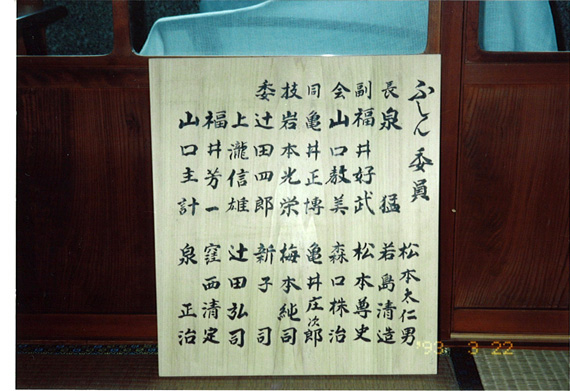 ふとん 委員
長 泉 猛
副 福井好武
会 山口教美
同 亀井正博
技 岩本光栄
委 辻田四郎
上瀧信雄
福井芳一
山口主計
松本太仁男
若島清造
松本尊史
森口株治
亀井庄次郎
梅本純司
新子 司
辻田弘司
窪西清定
泉 正治
'93 3 22